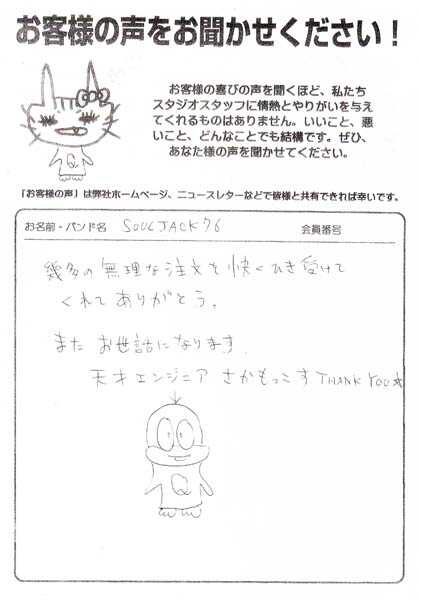 お客様の声をお聞かせください！
お客様の喜びの声を聞くほど、私たち
スタジオスタッフに情熱とやりがいを与え
てくれるものはありません。いいこと、悪
いこと、どんなことでも結構です。ぜひ、
あなた様の声を聞かせてください。
Q
「お客様の声」は弊社ホームページ、ニュースレターなどで皆様と共有できれば幸いです。
お名前・バンド名 SOULJACK76 会員番号
幾多の無理な注文を快くひき受けて
くれてありがとう。
また お世話になります.
天才エンジニア さかもっこす THANK YOU☆
Q